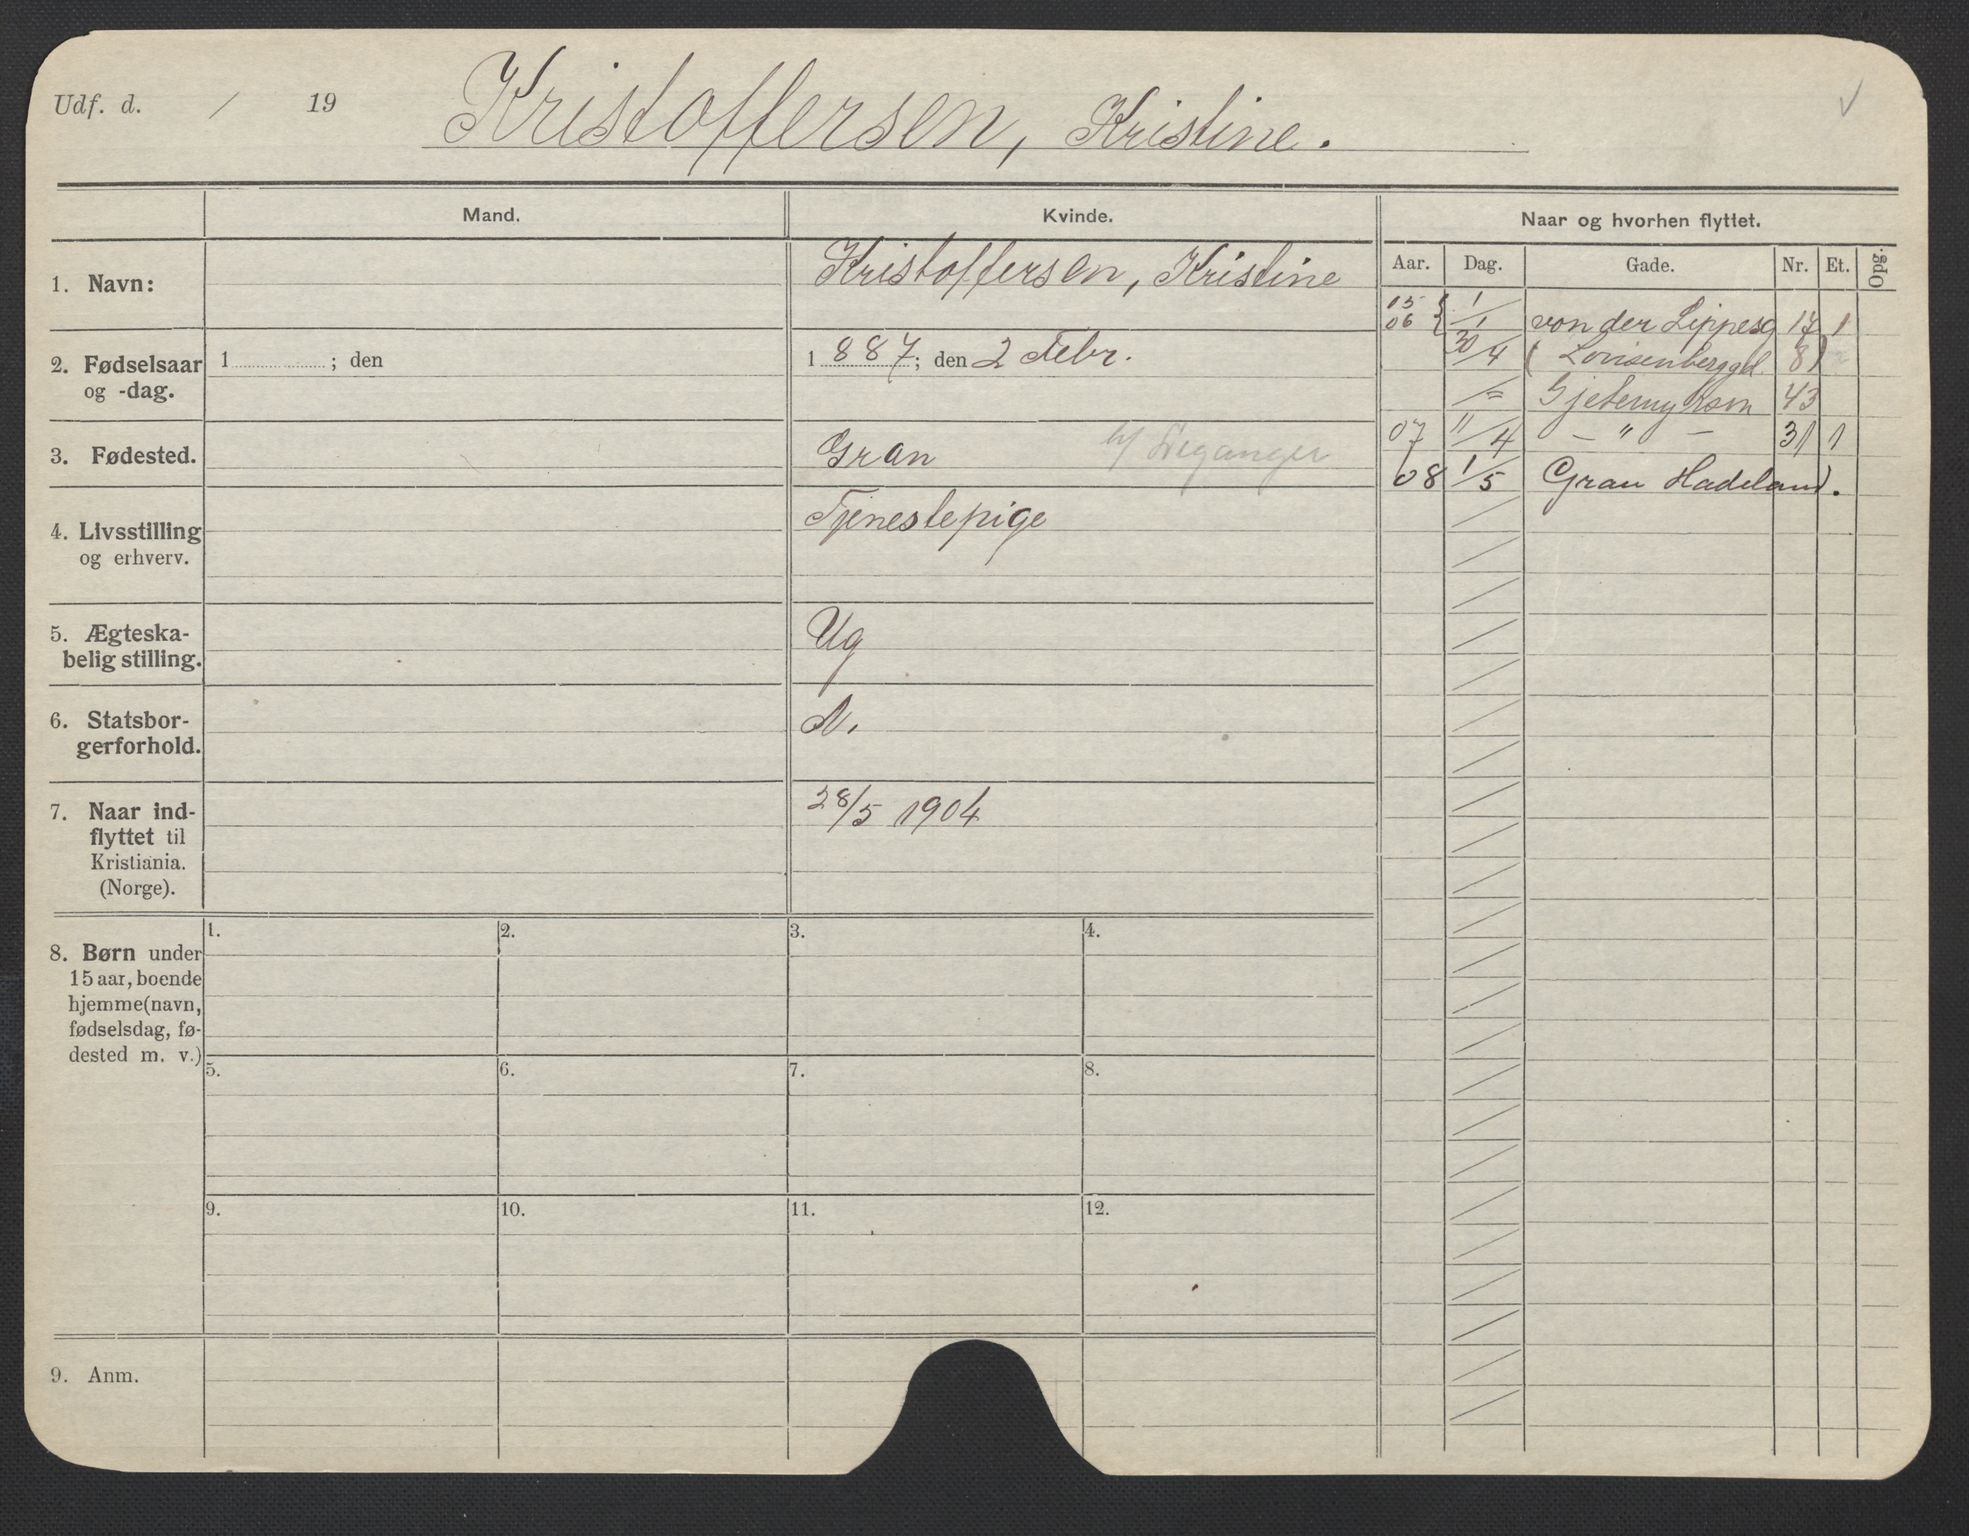 Udf. d. / 19
Kristoffersen, Kristine.
Mand. Kvinde. Naar og hvorhen flyttet.
Aar. Dag. Gade. Nr. Et. Opg.
1. Navn: Kristoffersen, Kristine
2. Fødselsaar 1 ; den 1887; den 2 Febr.
og -dag.
3. Fødested. Gran
4. Livsstilling Tjenestepige
og erhverv.
5. Ægteska- Ug
belig stilling.
6. Statsbor- N.
gerforhold.
7. Naar ind- 28/5 1904
flyttet til
Kristiania.
(Norge).
05
06 { 1/1 von der Lippesg 17 1
30/4 ( Lovisenberggd. 8 )
/= Gjetemyrsvn 43
07 11/4 – " – 31 1
08 1/5 Gran Hadeland.
8. Børn under
15 aar, boende
hjemme (navn,
fødselsdag, fø-
dested m. v.)
1. 2. 3. 4.
5. 6. 7. 8.
9. 10. 11. 12.
9. Anm.